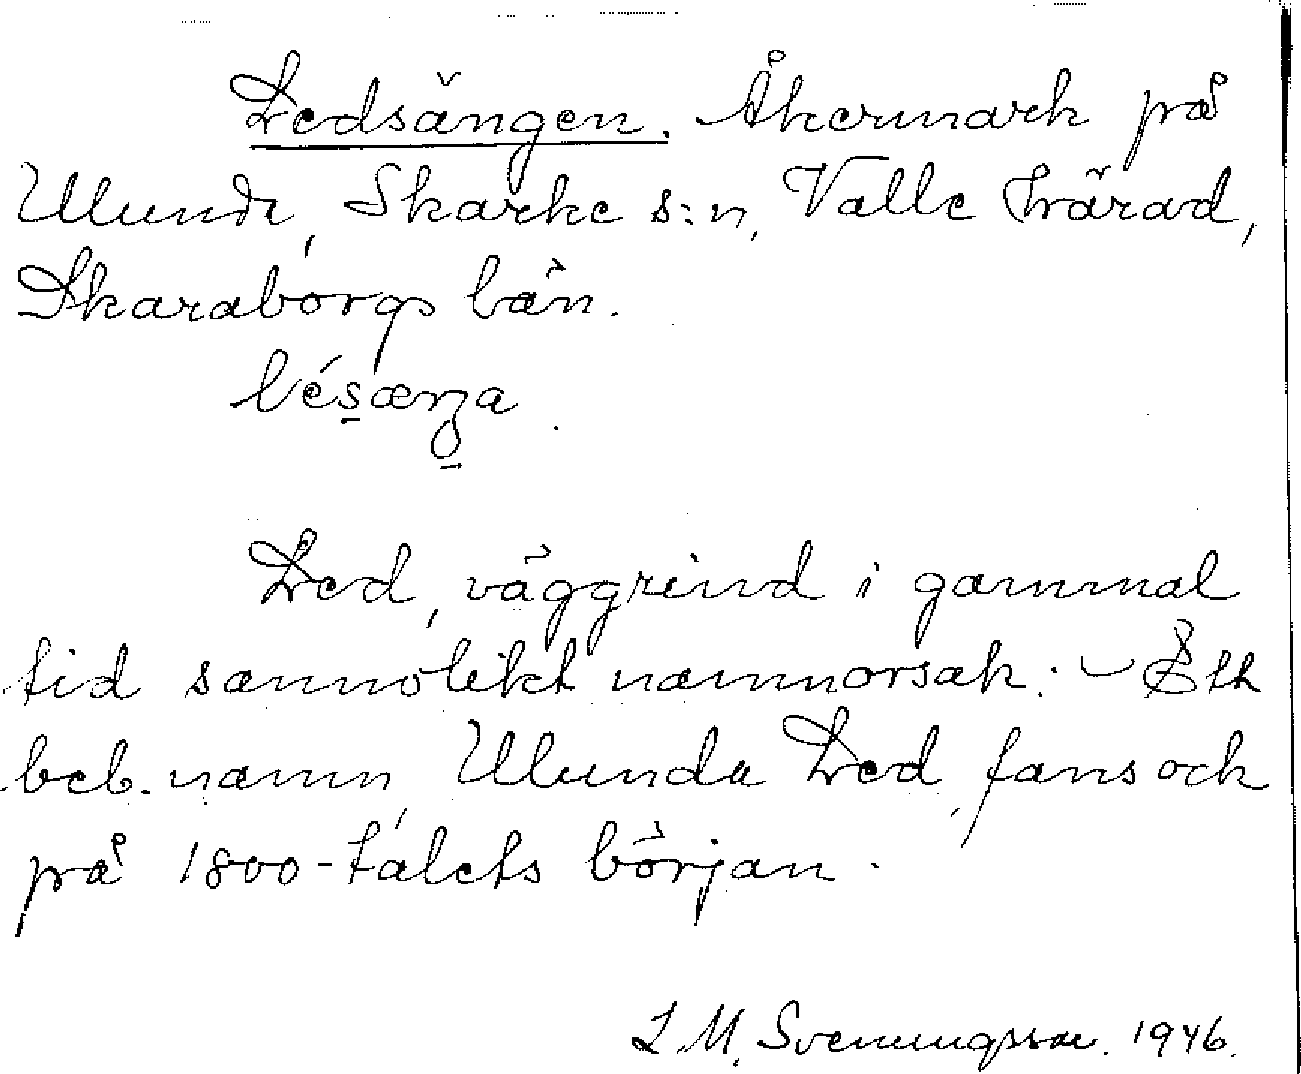 Ledsängen. Åkermark på
Ulunda, Skarke s:n, Valle härad,
Skaraborgs län.
lésæŋa.
Led, väggrind i gammal
tid sannolikt namnorsak. - Ett
beb. namn, Ulunda Led, fans ock
på 1800-talets början.
L. M. Svenungsson. 1946.